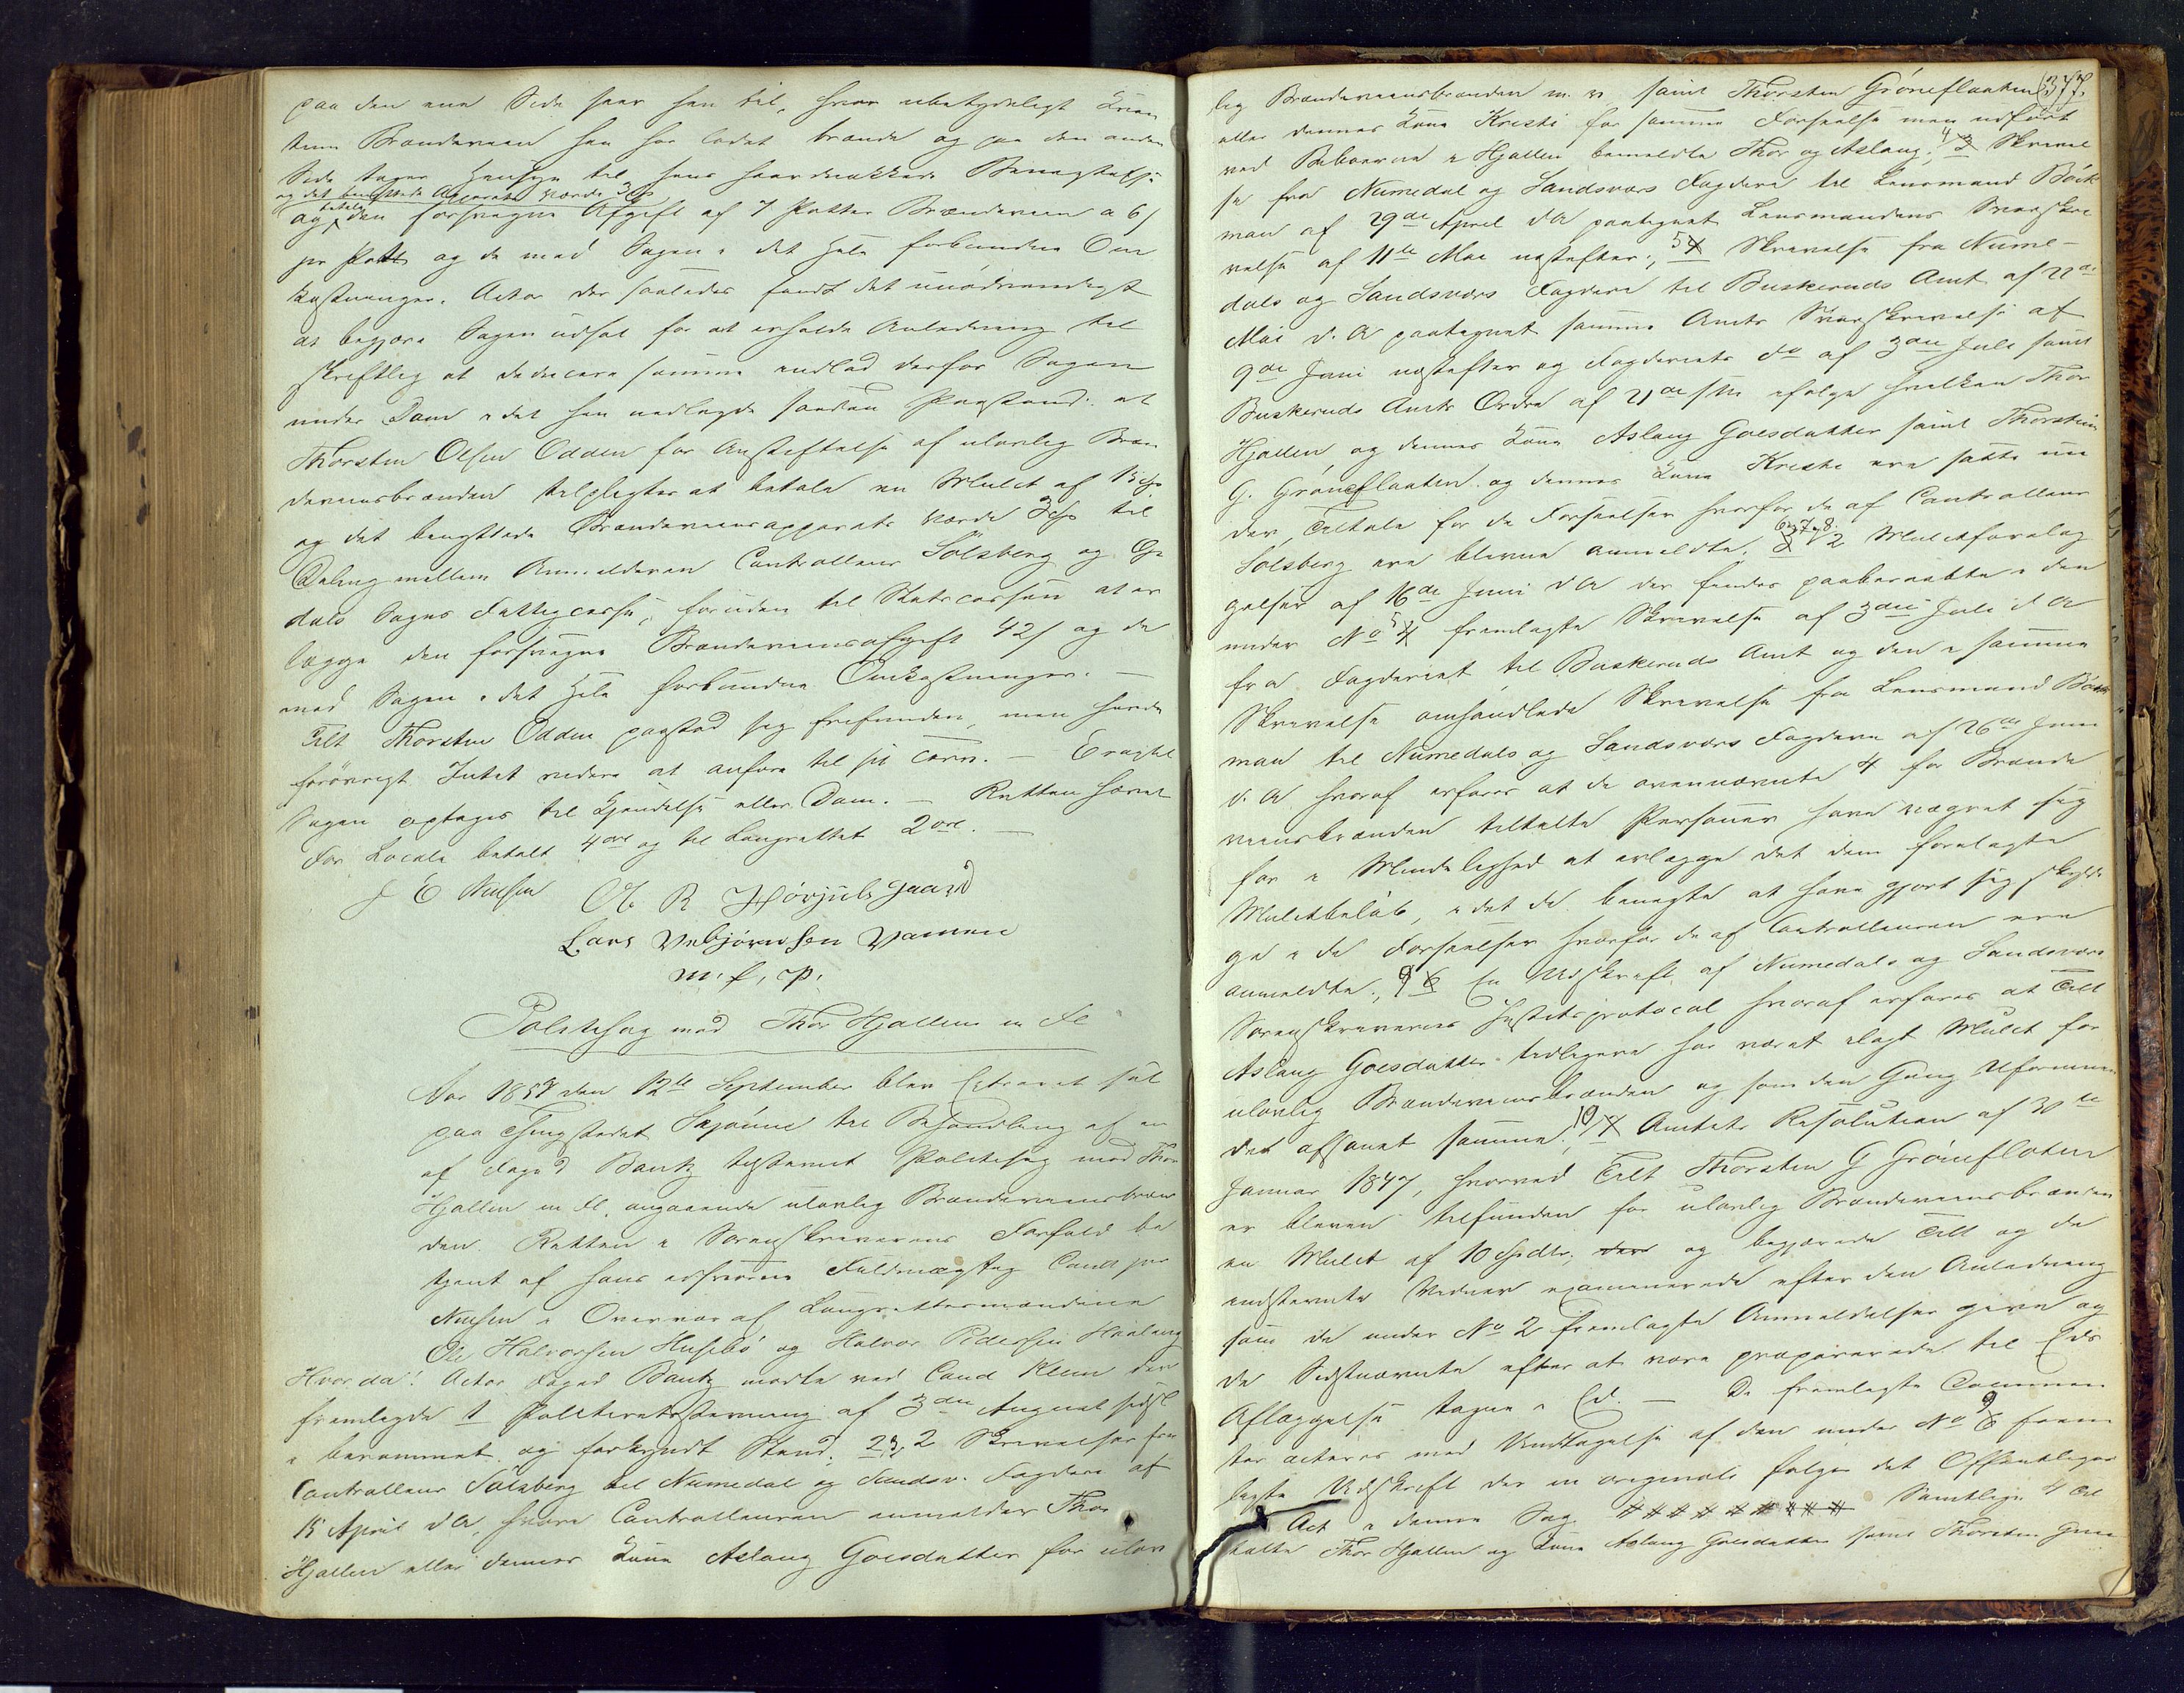 paa den ene Side saar hen til, hvor ubetydeligt Qvan
tum Brændeviin han har ladet brænde og paa den anden
Side tages Hensyn til hans haardnakkede Benægtelse
og det benyttede Apparats Værdi 3 Spd
og betale den forsvegne Afgift af 7 Potter Brændeviin a 6 s
pr Pott og de med Sagen i det Hele forbundne Om
kostninger. Actor der saaledes fandt det unødvendigt
at begjære Sagen udsat for at erholde Anledning til
skriftlig at deducere samme indlod derfor Sagen
under Dom idet han nedlagde saadan Paastand: at
Thorsten Olsen Odden for Anstiftelse af ulovlig Bræn
deviinsbrænden tilpligtes at betale en Mulct af 15 Spd
og det benyttede Brændeviinsapparats Værdi 3 Spd til
Deling mellem Anmelderen Controlleur Sölsberg og Op
dals Sogns Fattigcasse, foruden til Statscassen at er
lægge den forsvegne Brændeviinsafgift 42 s og de
med Sagen i det Hele forbundne Omkostninger. —
Tilt Thorsten Odden paastod sig frifunden, men havde
forövrigt Intet videre at anföre til sit Tarv. — Eragtet
Sagen optages til Kjendelse eller Dom. — Retten hævet
For Locale betalt 4 ort og til Laugrettet 2 ort. —
J E Nielsen Ole R Hövjulsgaard
Lars Vebjörnsen Vamen
m. f. P.
Politiesag mod Thor Hjallen m Fl
Aar 1859 den 12te September blev Extraret sat
paa Thingstedet Skjönne til Behandling af en
af Foged Bautz udstævnt Politiesag mod Thor
Hjallen m Fl. angaaende ulovlig Brændeviinsbræn
den. Retten i Sorenskriverens Forfald be
tjent af hans edsvorne Fuldmægtig Cand jur
Nielsen i Overvær af Laugrettesmændene
Ole Halvorsen Husebö og Halvor Pedersen Haalang
Hvor da! Actor Foged Bautz mødte ved Cand Klem der
fremlagde 1 Politieretsstævning af 3die August sidstl
i berammet og forkyndt Stand. 2, 3, 2 Skrivelser fra
Controlleur Sölsberg til Numedal og Sandsv. Fogderi af
15 April d A, hvori Controlleuren anmelder Thor
Hjallen eller dennes Kone Aslaug Goesdatter for ulov
377.
lig Brændeviinsbrænden m. v. samt Thorsten Gröneflaaten
eller dennes Kone Kristi for samme Forseelse men udført
ved Beboerne i Hjallen bemeldte Thor og Aslaug, 4 3 Skrivel
se fra Numedal og Sandsværs Fogderi til Lensmand Böck
man af 29de April d A paategnet Lensmandens Svarskri
velse af 11te Mai næstefter, 5 4 Skrivelse fra Nume-
dals og Sandsværs Fogderi til Buskeruds Amt af 22de
Mai d. A paategnet samme Amts Svarskrivelse af
9de Juni næstefter og Fogderiets do af 3die Juli samt
Buskeruds Amts Ordre af 21de s M ifølge hvilken Thor
Hjallen og dennes Kone Aslaug Goesdatter samt Thorstein
G. Gröneflaaten og dennes Kone Kristi ere satte un
der Tiltale for de Forseelser hvorfor de af Controlleur
Sölsberg ere blevne anmeldte. 6 7 8 2 Mulctforelæg
gelser af 16de Juni d A der findes paaberaabte i den
under No 5 4 fremlagte Skrivelse af 3die Juli d A
fra Fogderiet til Buskeruds Amt og den i samme
Skrivelse omhandlede Skrivelse fra Lensmand Böck
man til Numedals og Sandsværs Fogderi af 26de Juni
d. A hvoraf erfares at de ovennævnte 4 for Brænde
viinsbrænden tiltalte Personer have vægret sig
for i Mindelighed at erlægge det dem forelagte
Mulctbeløb, idet de benægte at have gjort sig skyldi
ge i de Forseelser hvorfor de af Controlleuren ere
anmeldte, 9 6 En Udskrift af Numedals og Sandsværs
Sorenskriveries Justitsprotocol hvoraf erfares at Tilt
Aslaug Goesdatter tidligere har været ilagt Mulct for
ulovlig Brændeviinsbrænden og som den Gang Uformuen
det afsonet samme, 10 7 Amtets Resolution af 30te
Januar 1847, hvorved Tilt Thorsten G Gröneflaten
er bleven tilfunden for ulovlig Brændeviinsbrænden
en Mulct af 10 Spdlr, og begjærede Tilt og de
indstævnte Vidner examinerede efter den Anledning
som de under No 2 fremlagte Anmeldelser give og
de Sidstnævnte efter at være præparerede til Eds
Aflæggelse tagne i Ed. — De fremlagte Documen
ter acteres med Undtagelse af den under No 9 6 frem
lagte Udskrift der in originali følger det Offentliges
Act i denne Sag. # # # # # # # # # Samtlige 4 Til
talte Thor Hjallen og Kone Aslaug Goesdatter samt Thorsten Grøne